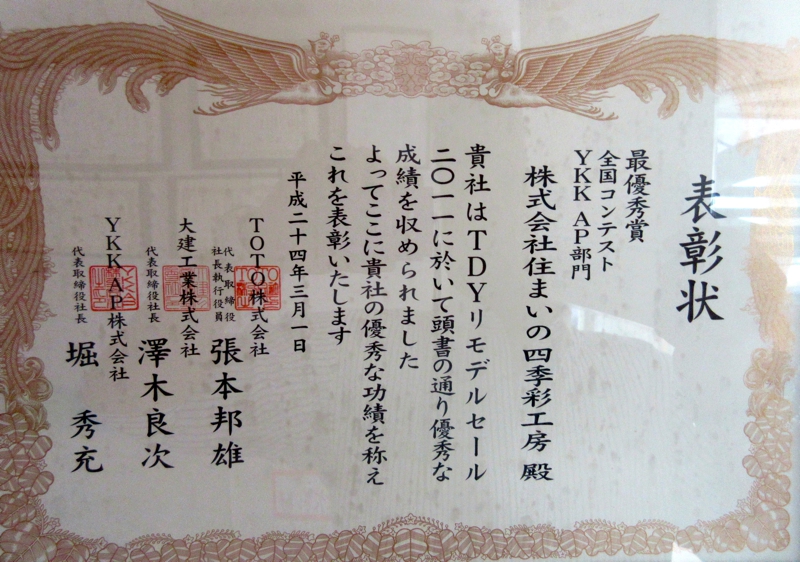 表彰状
最優秀賞
全国コンテスト
YKK AP部門
株式会社住まいの四季彩工房 殿
貴社はTDYリモデルセール
二〇一一に於いて頭書の通り優秀な
成績を収められました
よってここに貴社の優秀な功績を称え
これを表彰いたします
平成二十四年三月一日
TOTO株式会社
代表取締役
社長執行役員
張本邦雄
大建工業株式会社
代表取締役社長
澤木良次
YKK AP株式会社
代表取締役社長
堀 秀充